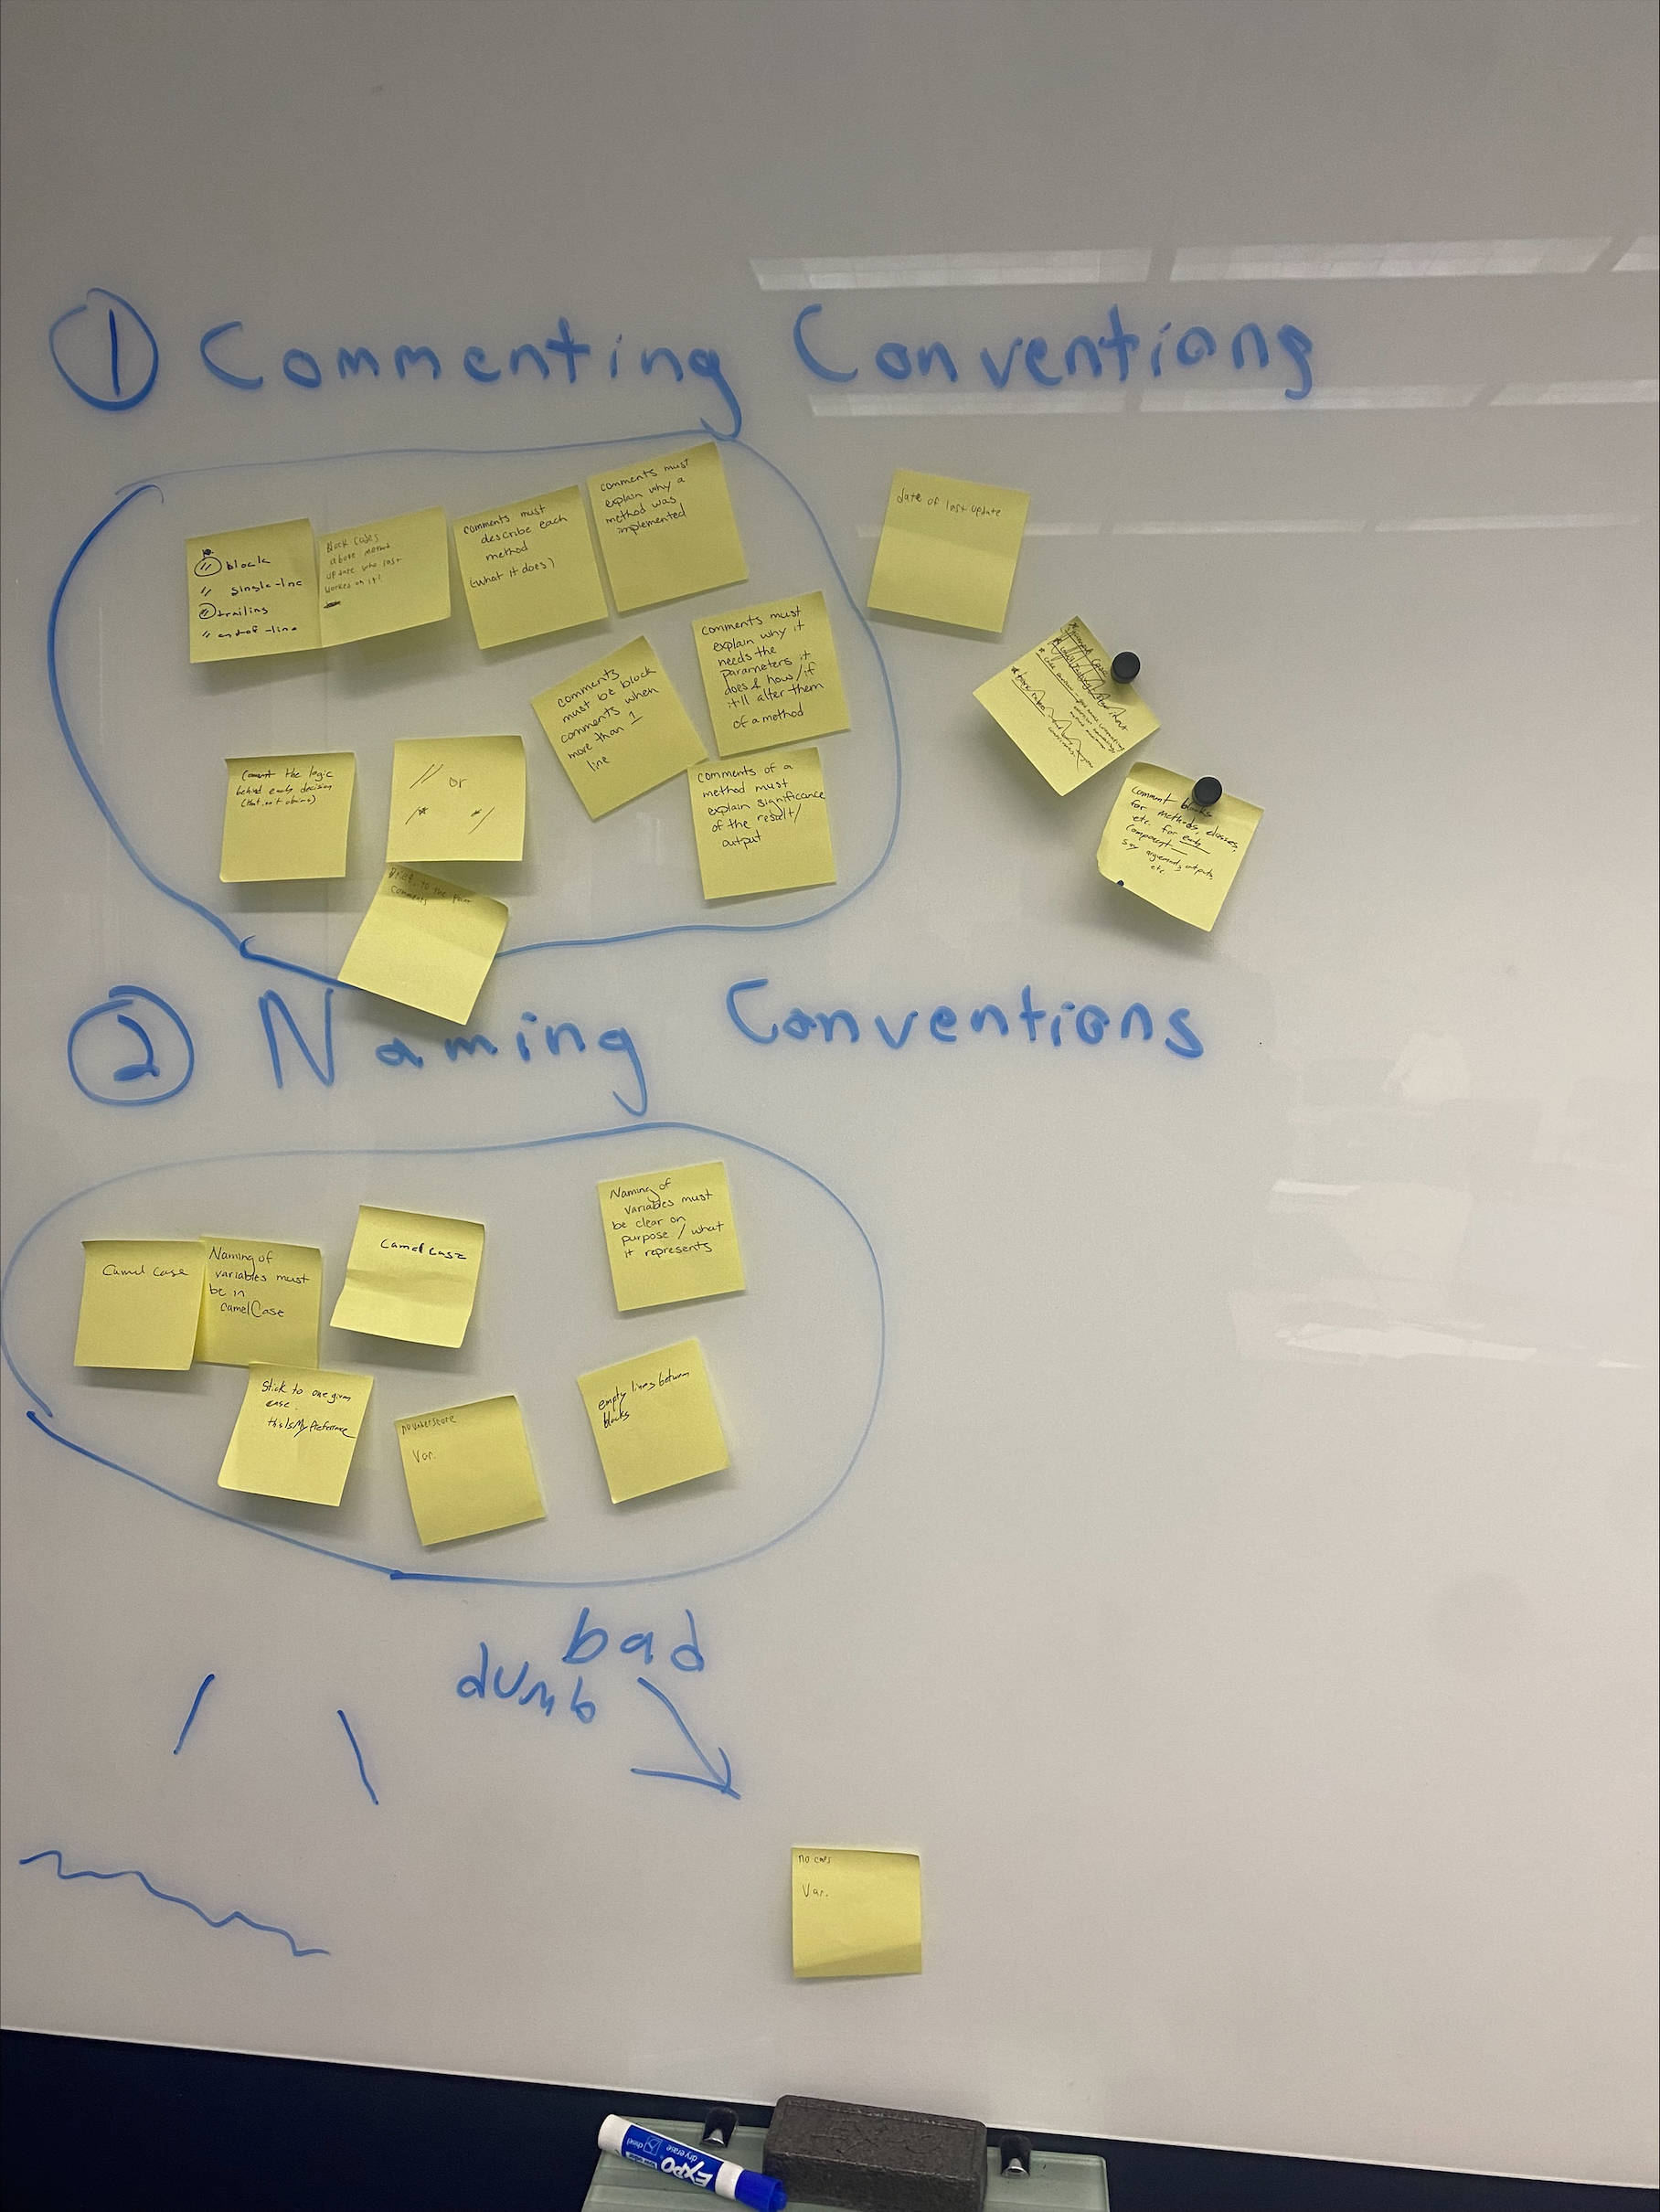 1 Commenting Conventions
// block
// single-line
// trailing
// end-of-line
Block Codes
above method
update who last
worked on it?
comments must
describe each
method
(what it does)
comments must
explain why a
method was
implemented
date of last update
comments
must be block
comments when
more than 1
line
comments must
explain why it
needs the
parameters it
does & how/if
it'll alter them
of a method
the logic
behind every decision
// or
/* */
comments of a
method must
explain significance
of the result/
output
comment blocks
for methods, classes,
etc. for every
component
say arguments, outputs,
etc.
Brief, to the point
comments
2 Naming Conventions
Camel Case
Naming of
variables must
be in
camelCase
Camel Case
Naming of
variables must
be clear on
purpose / what
it represents
Stick to one given
case.
thisIsMyPreference
no underscore
Var.
empty lines between
blocks
bad
dumb
no caps
Var.
EXPO
dry erase
chisel